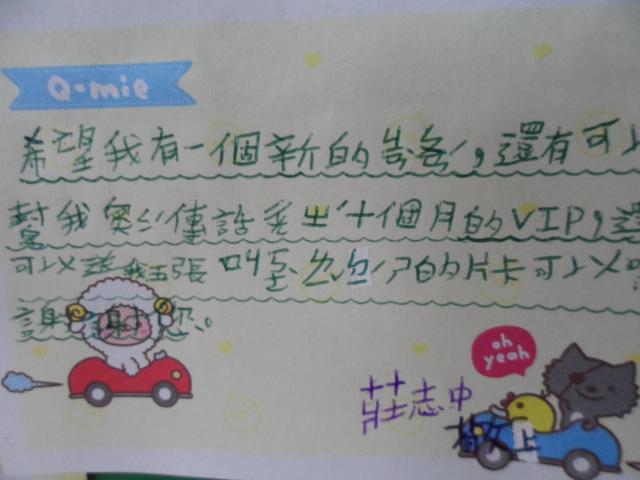 Q-mie
希望我有一個新的，還有可以
幫我奧ㄉ傳話 出 十個月的VIP，還
可以送我五張 叫 ㄅ ㄕ的片卡可以
謝謝您。
oh yeah
莊志中
敬上